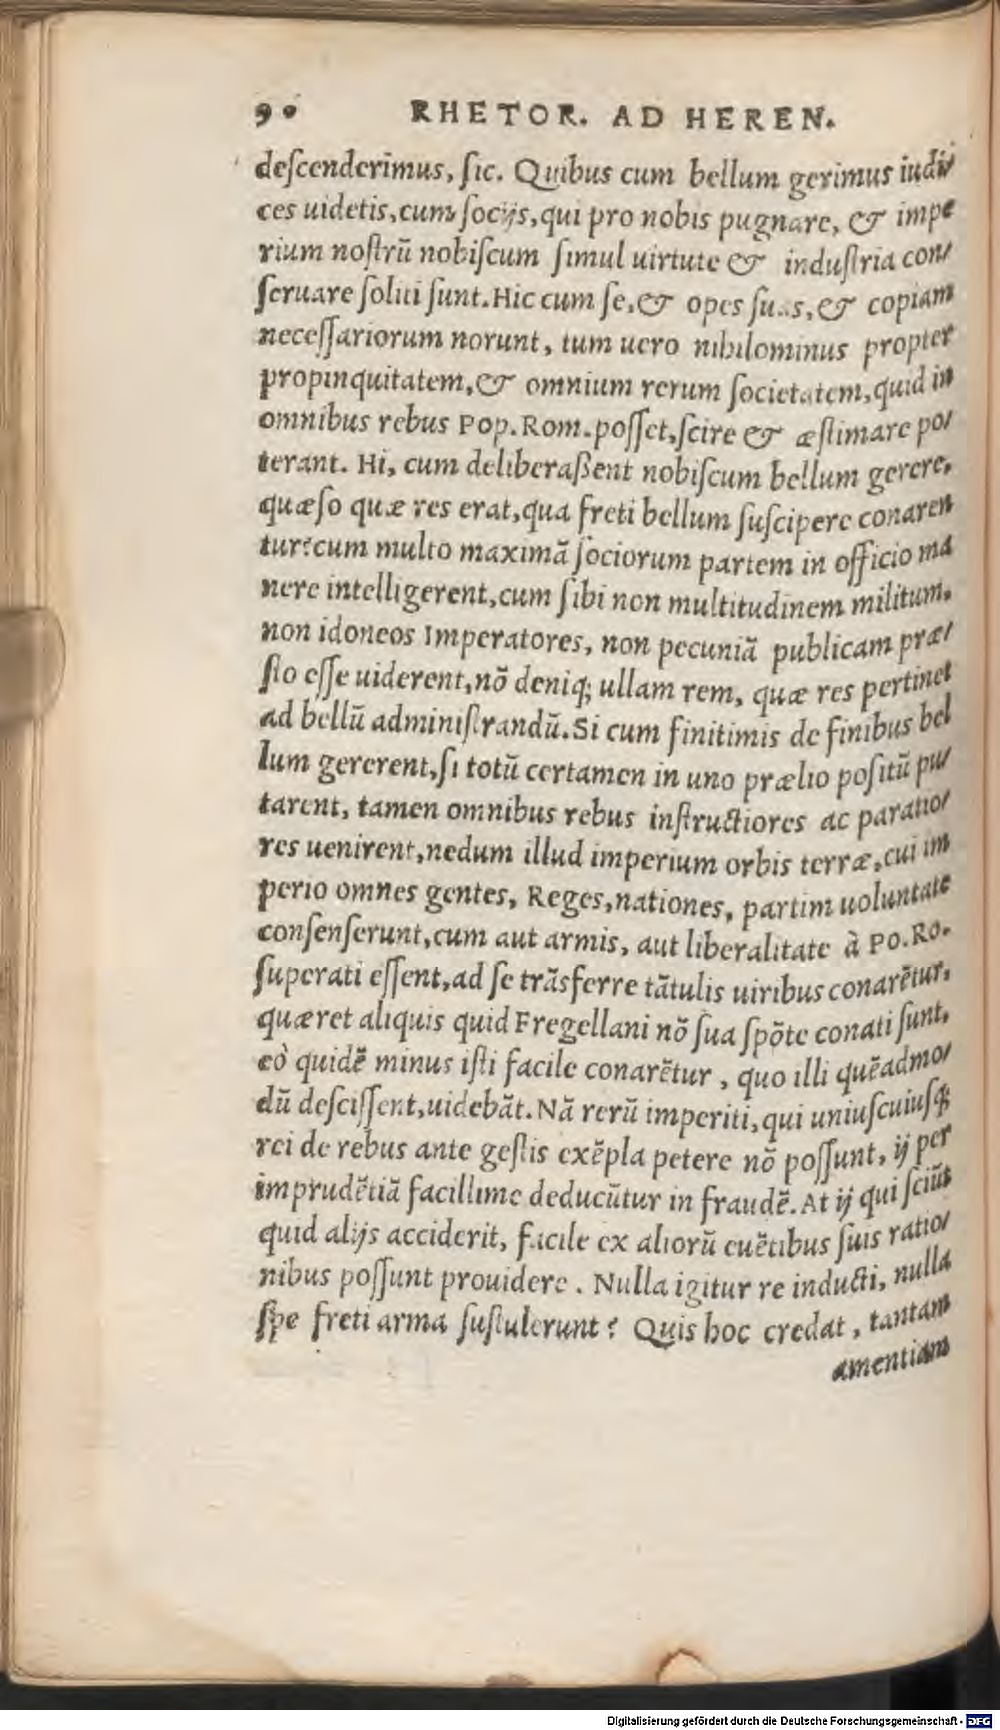 90 RHETOR. AD HEREN.
deſcenderimus, ſic. Quibus cum bellum gerimus iudi/
ces uidetis,cum ſocijs,qui pro nobis pugnare, & impe
rium noſtrū nobiſcum ſimul uirtute & induſtria con/
ſeruare ſoliti ſunt.Hic cum ſe,& opes ſuas,& copiam
neceſſariorum norunt, tum uero nihilominus propter
propinquitatem,& omnium rerum ſocietatem,quid in
omnibus rebus Pop.Rom.poſſet,ſcire & æſtimare po/
terant. Hi, cum deliberaßent nobiſcum bellum gerere,
quæſo quæ res erat,qua freti bellum ſuſcipere conaren
tur?cum multo maximā ſociorum partem in officio ma
nere intelligerent,cum ſibi non multitudinem militum,
non idoneos Imperatores, non pecuniā publicam præ/
ſto eſſe uiderent,nō deniq; ullam rem, quæ res pertinet
ad bellū adminiſtrandū.Si cum finitimis de finibus bel
lum gererent,ſi totū certamen in uno prælio poſitū pu/
tarent, tamen omnibus rebus inſtructiores ac paratio/
res uenirent,nedum illud imperium orbis terræ,cui im
perio omnes gentes, Reges,nationes, partim uoluntate
conſenſerunt,cum aut armis, aut liberalitate à Po.Ro.
ſuperati eſſent,ad ſe trāsferre tātulis uiribus conarētur.
quæret aliquis quid Fregellani nō ſua ſpōte conati ſunt,
eò quidē minus iſti facile conarētur , quo illi quēadmo/
dū deſciſſent,uidebāt.Nā rerū imperiti,qui uniuſcuiuſq;
rei de rebus ante geſtis exēpla petere nō poſſunt, ij per
imprudētiā facillime deducūtur in fraudē.At ij qui ſciūt
quid alijs acciderit, facile ex aliorū euētibus ſuis ratio/
nibus poſſunt prouidere . Nulla igitur re inducti, nulla
ſpe freti arma ſuſtulerunt? Quis hoc credat , tantam
amentiam
Digitalisierung gefördert durch die Deutsche Forschungsgemeinschaft - DFG